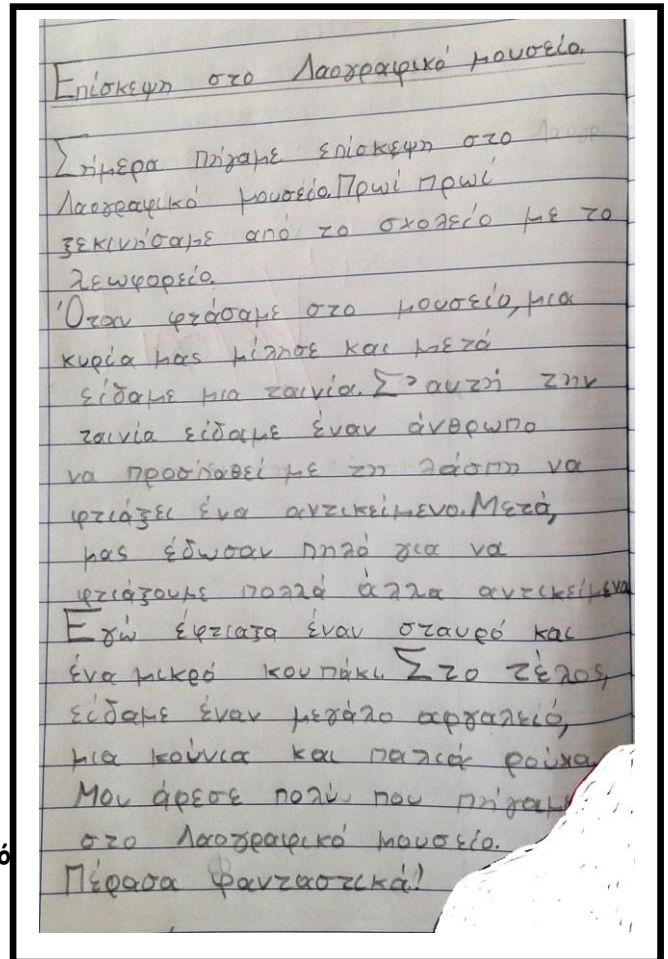 Επίσκεψη στο Λαογραφικό μουσείο.
Σήμερα πήγαμε επίσκεψη στο
Λαογραφικό μουσείο. Πρωί πρωί
ξεκινήσαμε από το σχολείο με το
λεωφορείο.
Όταν φτάσαμε στο μουσείο, μια
κυρία μας μίλησε και μετά
είδαμε μια ταινία. Σ' αυτή την
ταινία είδαμε έναν άνθρωπο
να προσπαθεί με τη λάσπη να
φτιάξει ένα αντικείμενο. Μετά,
μας έδωσαν πηλό για να
φτιάξουμε πολλά άλλα αντικείμενα
Εγώ έφτιαξα έναν σταυρό και
ένα μικρό κουπάκι. Στο τέλος,
είδαμε έναν μεγάλο αργαλειό,
μια κούνια και παλιά ρούχα.
Μου άρεσε πολύ που πήγαμε
στο Λαογραφικό μουσείο.
Πέρασα φανταστικά!